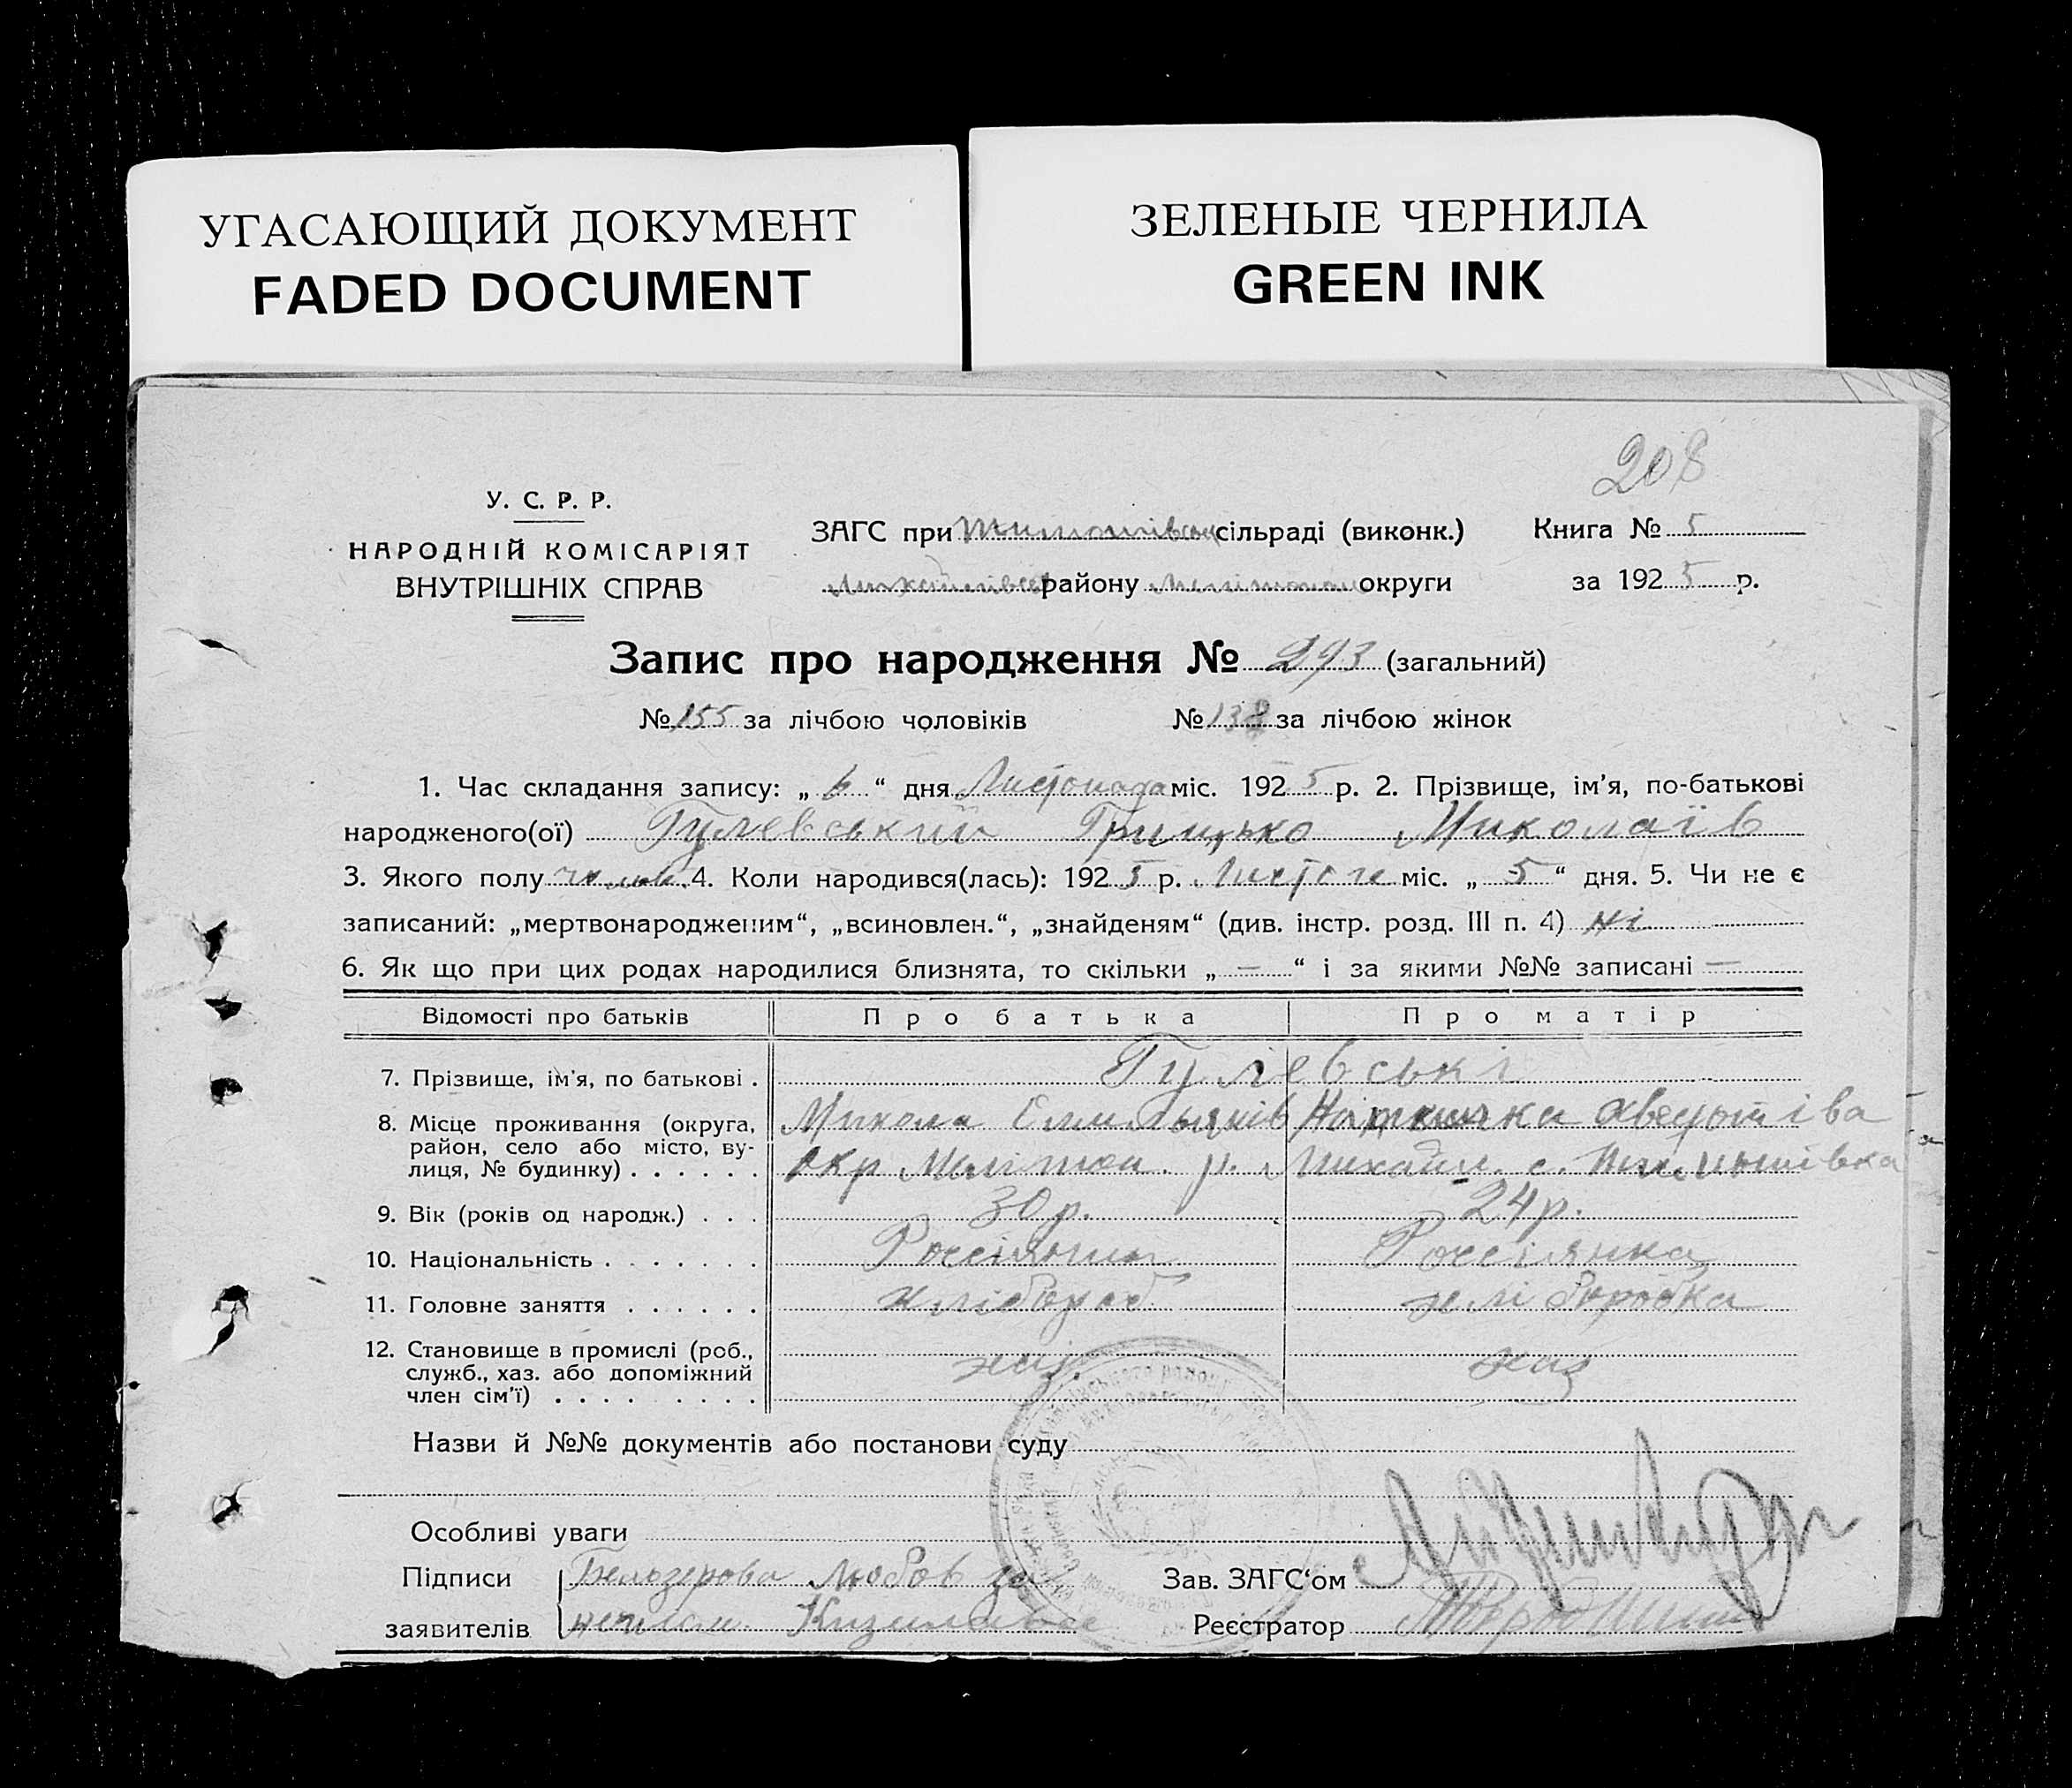 УГАСАЮЩИЙ ДОКУМЕНТ
FADED DOCUMENT
ЗЕЛЕНЫЕ ЧЕРНИЛА
GREEN INK
208
У. С. Р. Р.
НАРОДНІЙ КОМІСАРІЯТ
ВНУТРІШНІХ СПРАВ
ЗАГС при сільраді (виконк.)
району округи
Книга № 5
за 1925 р.
Запис про народження № 293 (загальний)
№ 155 за лічбою чоловіків № 138 за лічбою жінок
1. Час складання запису: „ 6 “ дня Листопада міс. 1925 р. 2. Прізвище, ім’я, по-батькові
народженого(ої) Гулевський Грицько Миколаїв
3. Якого полу 4. Коли народився(лась): 1925 р. міс. „ 5 “ дня. 5. Чи не є
записаний: „мертвонародженим“, „всиновлен.“, „знайденям“ (див. інстр. розд. III п. 4) ні
6. Як що при цих родах народилися близнята, то скільки „ — “ і за якими №№ записані —
Відомості про батьків Про батька Про матір
7. Прізвище, ім’я, по батькові . Гулевські
Микола Хведотіва
8. Місце проживання (округа,
район, село або місто, ву-
лиця, № будинку) . . . . . . Окр р. Михайл. с.
9. Вік (років од народж.) . . . 30 р. 24 р.
10. Національність . . . . . . . Россіянин Россіянка
11. Головне заняття . . . . . . хлібороб хліборобка
12. Становище в промислі (роб.,
служб., хаз. або допоміжний
член сім’ї) . . . . . . . . хаз. хаз
Назви й №№ документів або постанови суду
Особливі уваги
Підписи Белозерова Любов за
заявителів
Зав. ЗАГС‘ом
Реєстратор